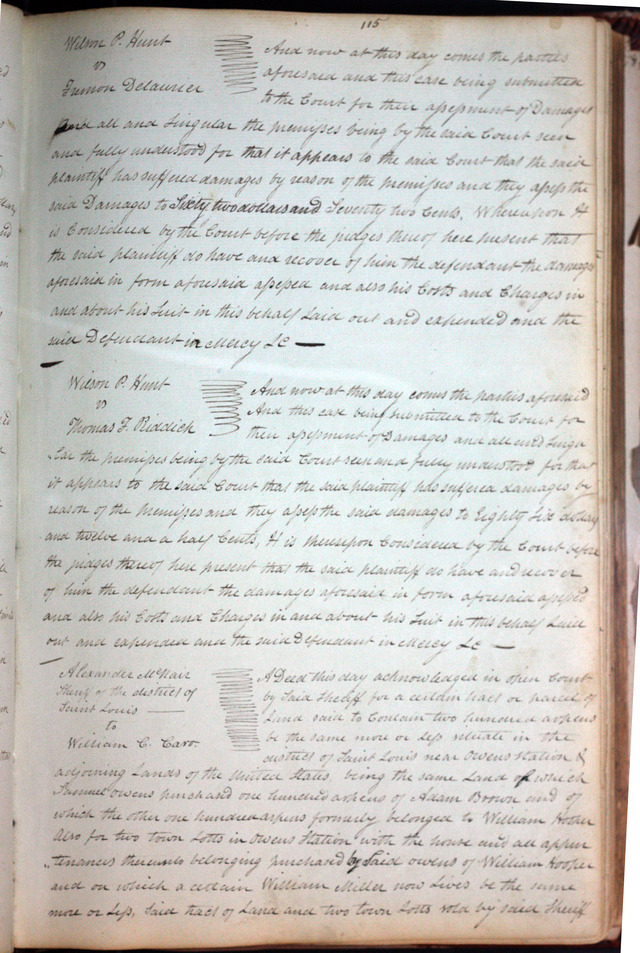 115
Wilson P. Hunt
vs
Delaurier
And now at this day comes the parties
aforesaid and this case being submitted
to the Court for their assessment of Damages
And all and Singular the premises being by the said Court seen
and fully understood for that it appears to the said Court that the said
plaintiff has suffered damages by reason of the premises and they assess the
said Damages to Sixty two dollars and Seventy two Cents, Whereupon It
is Considered by the Court before the judges thereof here present that
the said plaintiff do have and recover of him the defendant the damages
aforesaid in form aforesaid assessed and also his Costs and Charges in
and about his Suit in this behalf Laid out and expended and the
said Defendant in Mercy &c —
Wilson P. Hunt
vs
Thomas F. Riddick
And now at this day comes the parties aforesaid
And this case being submitted to the Court for
their assessment of Damages and all and Singu
lar the premises being by the said Court seen and fully understood for that
it appears to the said Court that the said plaintiff has suffered damages by
reason of the premises and they assess the said damages to Eighty Six dollars
and twelve and a half Cents, It is thereupon Considered by the Court before
the judges thereof here present that the said plaintiff do have and recover
of him the defendant the damages aforesaid in form aforesaid assessed
and also his Costs and Charges in and about his Suit in this behalf Laid
out and expended and the said Defendant in Mercy &c —
Alexander McNair
Sheriff of the district of
Saint Louis —
to
William C. Carr
A Deed this day acknowledged in open Court
by Said Sheriff for a certain tract or parcel of
Land said to Contain two hundred arpens
be the same more or Less situate in the
district of Saint Louis near Owens Station &
adjoining Lands of the United States, being the same Land of which
Samuel Owens purchased one hundred arpens of Adam Brown and of
which the other one hundred arpens formerly belonged to William Hooper
Also for two town Lotts in Owens Station with the house and all appur
tenances thereunto belonging purchased by Said Owens of William Hooper
and on which a certain William Miller now Lives be the same
more or Less, Said tract of Land and two town Lotts sold by said Sheriff